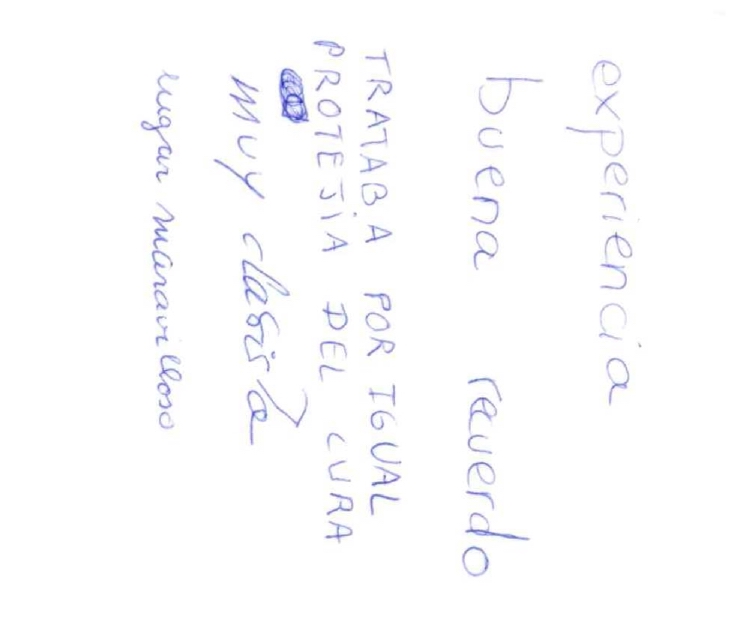 experiencia
buena recuerdo
TRATABA POR IGUAL
PROTEJiA DEL CURA
muy clasista
lugar maravilloso